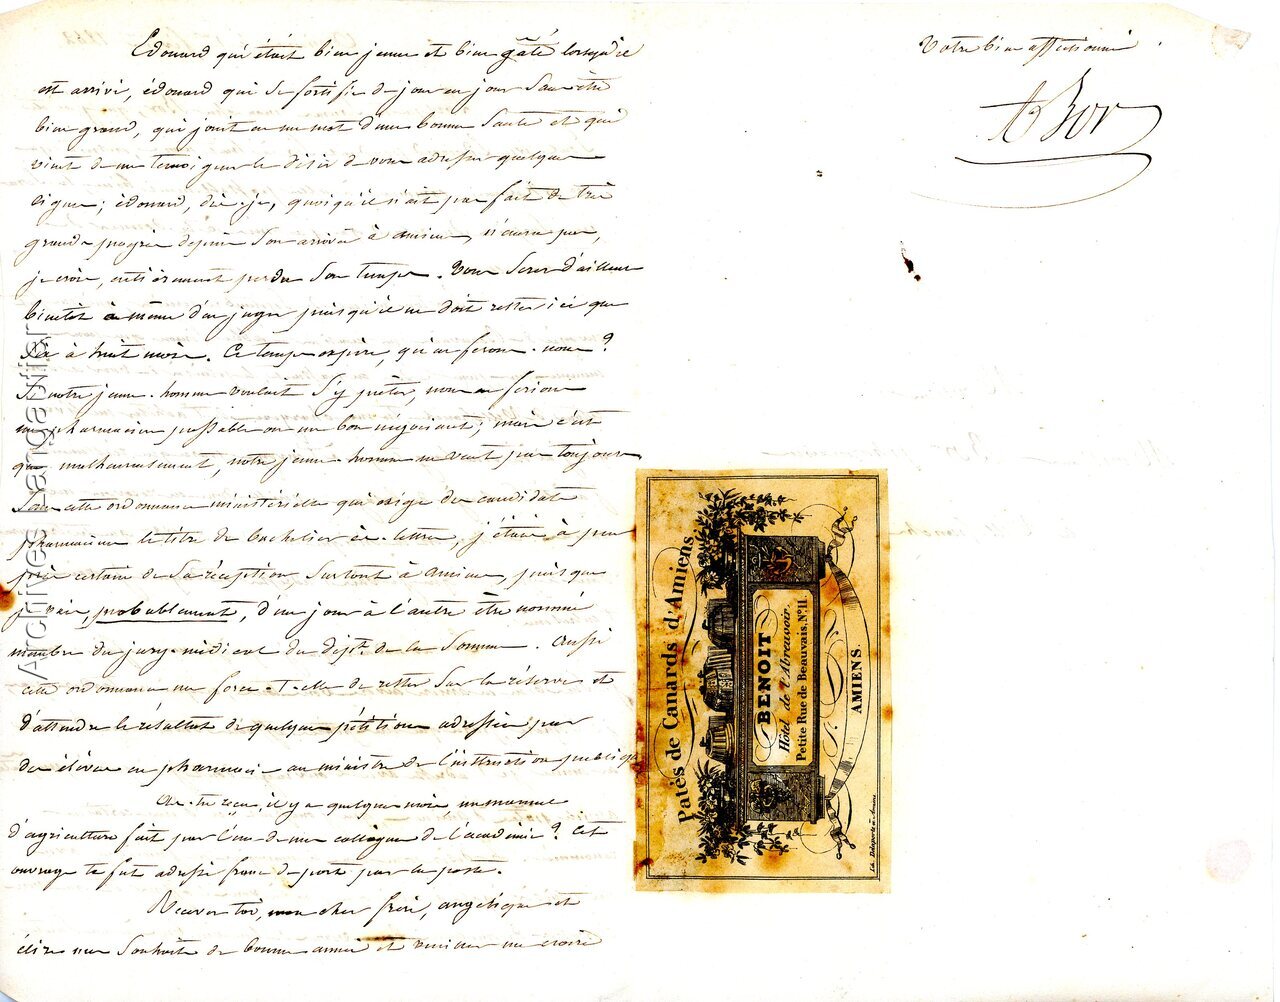 Edouard qui était bien jeune et bien gâté lorsqu'il
est arrivé, édouard qui se fortifie de jour en jour sans être
bien grand, qui jouit en un mot d'une bonne santé et qui
vient de me temoigner le désir de vous adresser quelques
lignes; édouard, dis-je, quoiqu'il n'ait pas fait de très
grands progrès depuis son arrivée à amiens, n'aura pas,
je crois, entièrement perdu son temps. Vous serez d'ailleurs
bientôt à même d'en juger puisqu'il ne doit rester ici que
six à huit mois. Ce temps expiré, qu'en ferons-nous?
Si notre jeune-homme voulait s'y prêter, nous en ferions
un pharmacien passable ou un bon négociant; mais c'est
que, malheureusement, notre jeune-homme ne veut pas toujours
Sans cette ordonnance ministérielle qui exige des candidats
pharmaciens le titre de bachelier ès-lettres, j'étais à peu
près certain de sa réception, surtout à Amiens, puisque
je vais, probablement, d'un jour à l'autre être nommé
membre du jury-médical du dépt. de la Somme. Aussi
cette ordonnance me force-t-elle de rester sur la réserve et
d'attendre le résultat de quelques pétitions adressées par
des élèves en pharmacie au ministre de l'instruction publique
As-tu reçu, il y a quelques mois, un manuel
d'agriculture fait par l'un de mes collègues de l'académie? Cet
ouvrage te fut adressé franc de port par la poste.
Recevez toi, mon cher frère, angélique et
élise nos souhaits de bonne année et veuillez me croire
Votre bien affectionné
A Bor
Patés de Canards d'Amiens
BENOIT
Hôtel de l'Abreuvoir,
Petite Rue de Beauvais, N° 11.
AMIENS.
Lith. Delaporte à Amiens
Archives Langavier